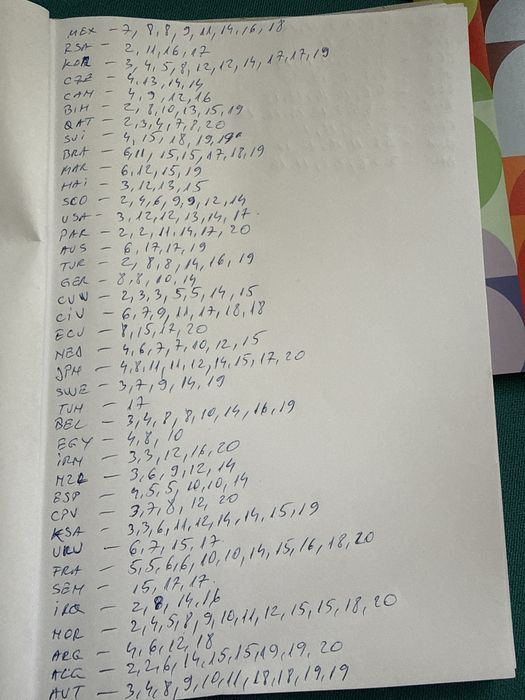 MEX - 7, 8, 8, 9, 11, 14, 16, 18
RSA - 2, 11, 16, 17
KOR - 3, 4, 5, 8, 12, 12, 14, 17, 17, 19
CZE - 4, 13, 14, 14
CAM - 4, 9, 12, 16
BIH - 2, 8, 10, 13, 15, 19
QAT - 2, 3, 4, 7, 8, 20
SUI - 4, 15, 18, 19, 19
BRA - 6, 11, 15, 15, 17, 18, 19
MAR - 6, 12, 15, 19
HAI - 3, 12, 13, 15
SCO - 2, 4, 6, 9, 9, 12, 14
USA - 3, 12, 12, 13, 14, 17.
PAR - 2, 2, 11, 14, 17, 20
AUS - 6, 17, 17, 19
TUR - 2, 8, 8, 14, 16, 19
GER - 8, 8, 10, 14
CUW - 2, 3, 3, 5, 5, 14, 15
CIV - 6, 7, 9, 11, 17, 18, 18
ECU - 8, 15, 17, 20
NED - 4, 6, 7, 7, 10, 12, 15
JPN - 4, 8, 11, 11, 12, 14, 15, 17, 20
SWE - 3, 7, 9, 14, 19
TUN - 17
BEL - 3, 4, 8, 8, 10, 14, 16, 19
EGY - 4, 8, 10
IRN - 3, 3, 12, 16, 20
NZL - 3, 6, 9, 12, 14
ESP - 4, 5, 5, 10, 10, 14
CPV - 3, 7, 8, 12, 20
KSA - 3, 3, 6, 11, 12, 14, 14, 15, 19
URU - 6, 7, 15, 17
FRA - 5, 5, 6, 6, 10, 10, 14, 15, 16, 18, 20
SEN - 15, 17, 17.
IRQ - 2, 8, 14, 16
NOR - 2, 4, 5, 8, 9, 10, 11, 12, 15, 15, 18, 20
ARG - 4, 6, 12, 18
ALG - 2, 2, 6, 14, 15, 15, 19, 19, 20
AUT - 3, 4, 8, 9, 10, 11, 18, 18, 19, 19